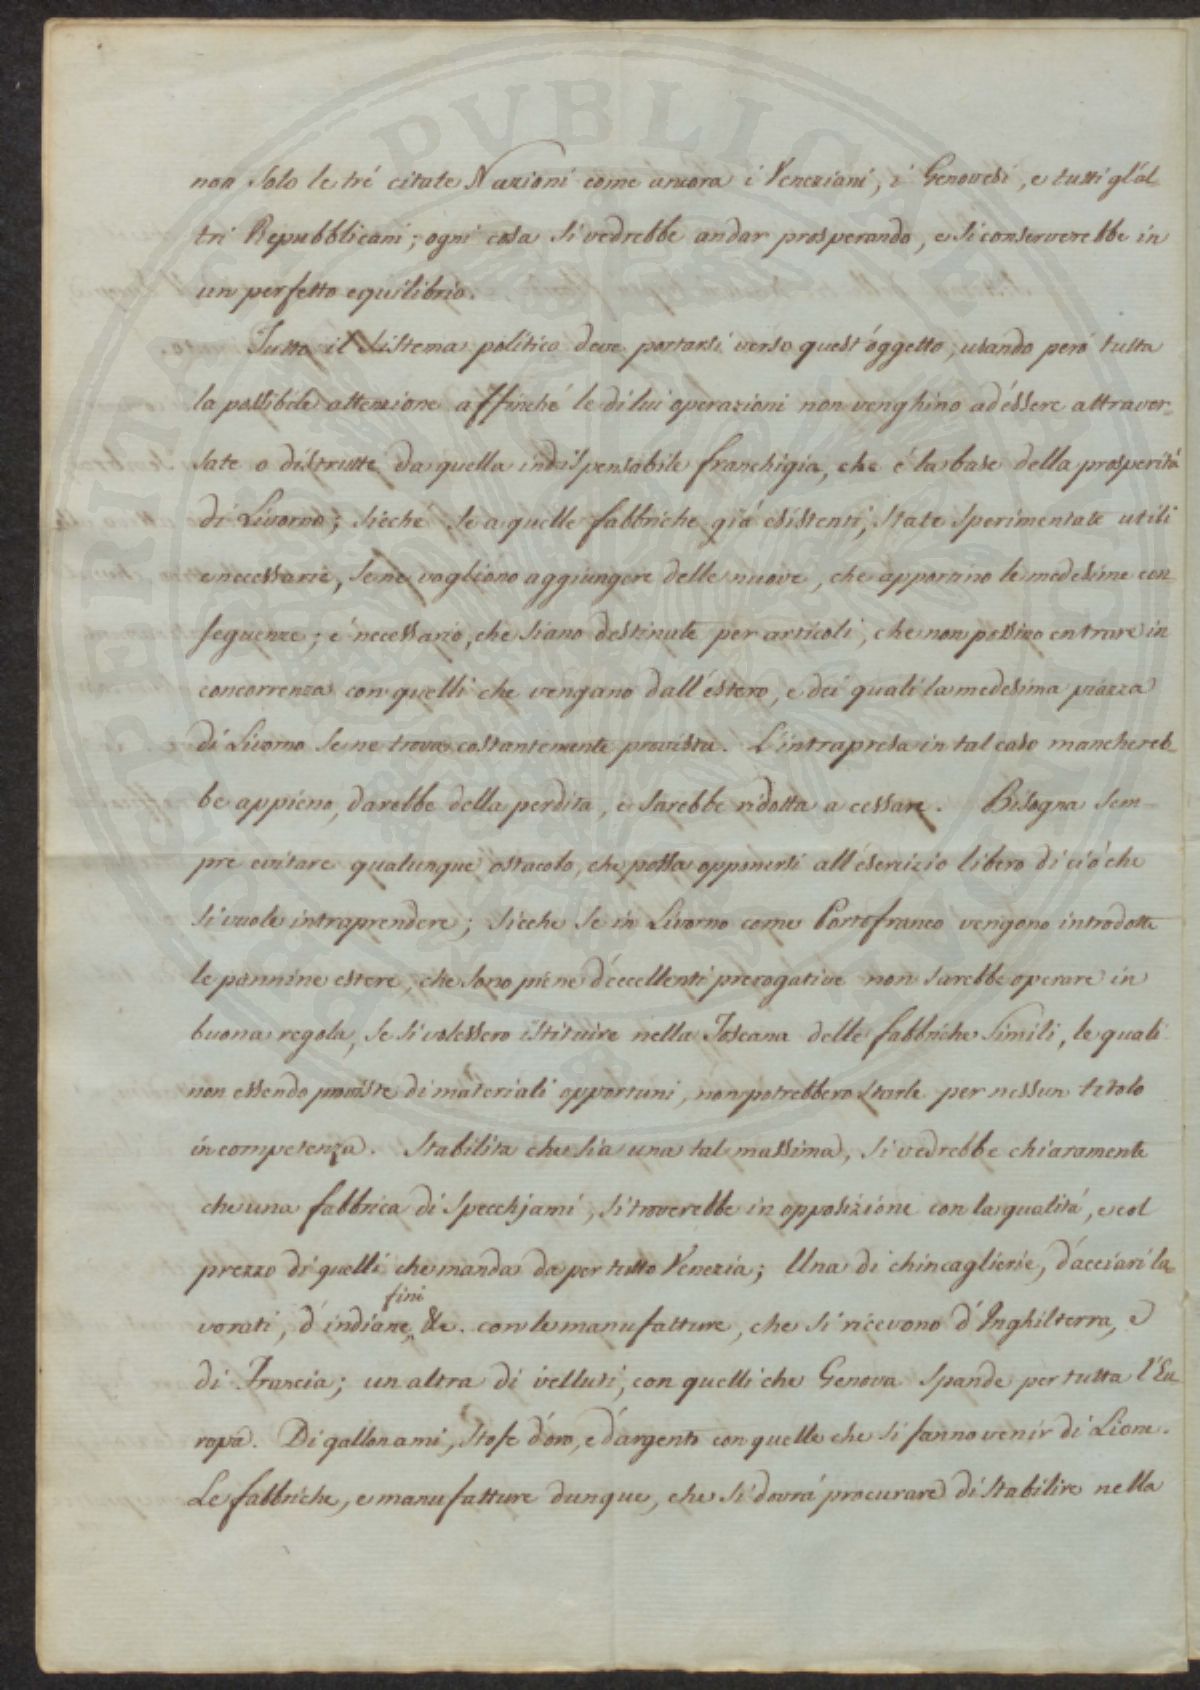 non solo le tré citate Nazioni come ancora i Veneziani, i Genovesi, e tutti gl'al
tri Repubblicani; ogni cosa si vedrebbe andar prosperando, e si conserverebbe in
un perfetto equilibrio.
Tutto il sistema politico deve portarsi verso quest'oggetto, usando peró tutta
la possibile attenzione affinché le di lui operazioni non venghino ad éssere attraver-
sate o distrutte da quella indispensabile franchigia, che é la base della prosperitá
di Livorno; sicché se a quelle fabbriche giá esistenti, state sperimentate utili
e necessarie, se ne vogliono aggiungere delle nuove, che apportino le medesime con
seguenze; é necessario, che siano destinate per articoli, che non possino entrare in
concorrenza con quelli che vengano dall'éstero, e dei quali la medesima piazza
di Livorno se ne trova costantemente provista. L'intrapresa in tal caso manchereb-
be appieno, darebbe della perdita, e sarebbe ridotta a cessare. Bisogna sem-
pre evitare qualunque ostacolo, che possa opponersi all'ésercizio libero di ció che
si vuole intraprendere; sicche se in Livorno come Portofranco vengono introdotte
le pannine estere, che sono piene d'eccellenti prerogative non sarebbe operare in
buona regola, se si volessero istituire nella Toscana delle fabbriche simili, le quali
non essendo proviste di materiali opportuni, non potrebbero starle per nessun titolo
in competenza. Stabilita che sia una tal massima, si vedrebbe chiaramente
che una fabbrica di specchjami, si troverebbe in opposizione con la qualitá, e col
prezzo di quelli che manda da per tutto Venezia; Una di chincaglierie, d'acciari la-
fini
vorati, d'indiane &c. con le manufatture, che si ricevono d'Inghilterra, e
di Francia; un altra di velluti, con quelli che Genova spande per tutta l'Eu
ropa. Di gallonami, stofe d'oro, e d'argento con quelle che si fanno venir di Lione.
Le fabbriche, e manufatture dunque, che si dovrá procurare di stabilire nella
PUBLICAE